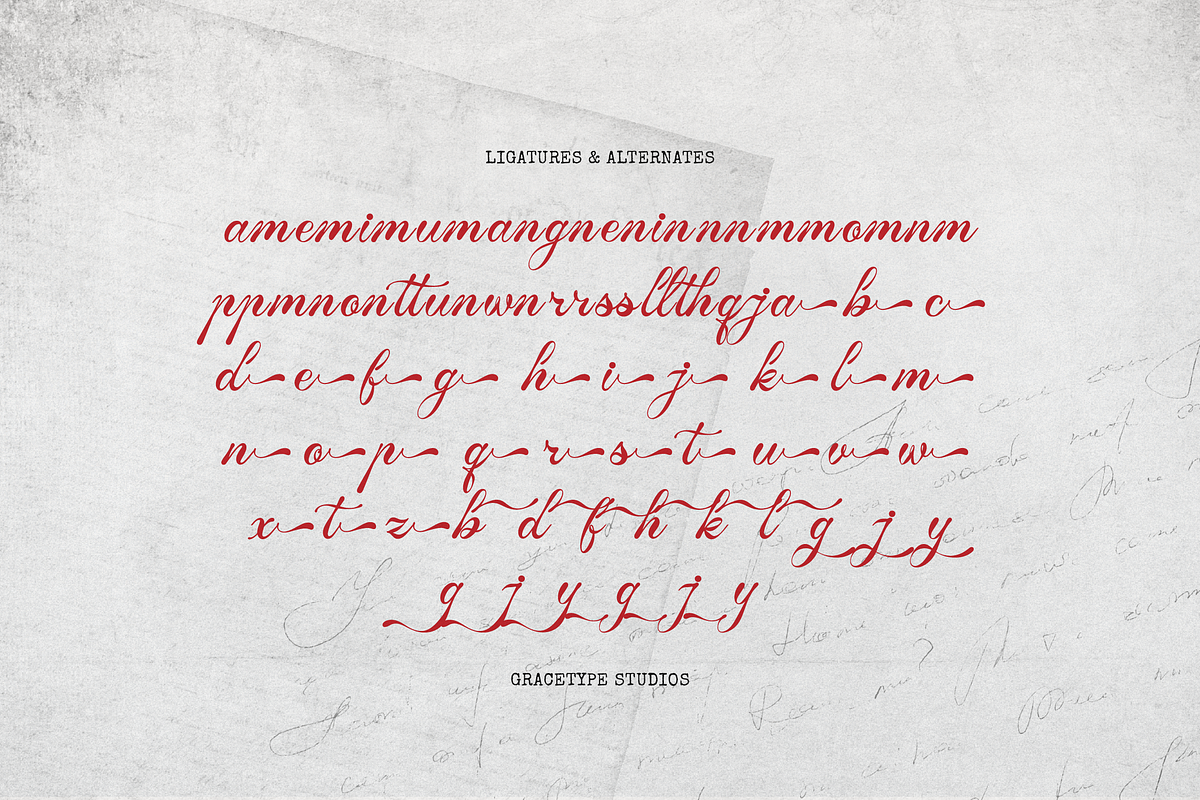 LIGATURES & ALTERNATES
amemimumangneninnnmmomnm
ppmnonttunwnrrssllthqja b c
d e f g h i j k l m
n o p q r s t u v w
x t z b d f h k l g j y
g j y g j y
GRACETYPE STUDIOS